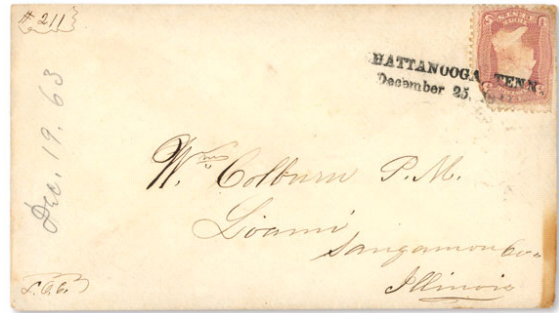 # 211
HATTANOOGA TENN.
December 25,
Dec. 19. 63
Wm Colburn P.M.
Loami
Sangamon Co.
Illinois